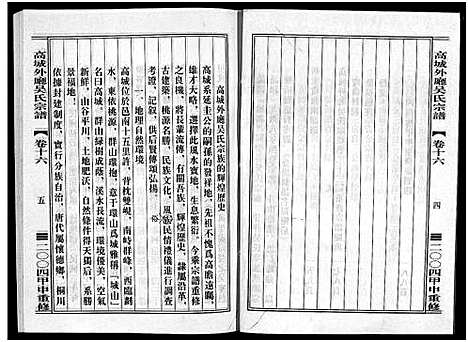 高城外廳吳氏宗譜
卷十六
四
二〇〇四甲申重修
高城外廳吳氏宗族的輝煌歷史
高城系延圭公的嗣孫的發祥地。先祖不愧爲高瞻遠矚，
雄才大略，選擇此風水寶地，生息繁衍，今乘宗譜重修
之良機，將長輩流傳，有關吾族，輝煌歷史，隸屬沿革，
古建築、桃源名勝、民族文化、風俗民情禮儀進行調查
考證、記叙，供后賢傳頌弘揚。
一、地理自然環境
高城位于邑南十五里許，背枕雙峴，南峙群峰，西臨劃
水，東依桃源，群山環抱，意于環山爲城雅稱「城山」
名曰高城，群山綠樹成蔭，溪水長流，環境優美，空氣
新鮮，山谷平川，土地肥沃，自然條件得天獨后，系勝
景福地！
依據封建制度，實行分族自治，唐代屬懷德鄉，桐川
高城外廳吳氏宗譜
卷十六
五
二〇〇四甲申重修